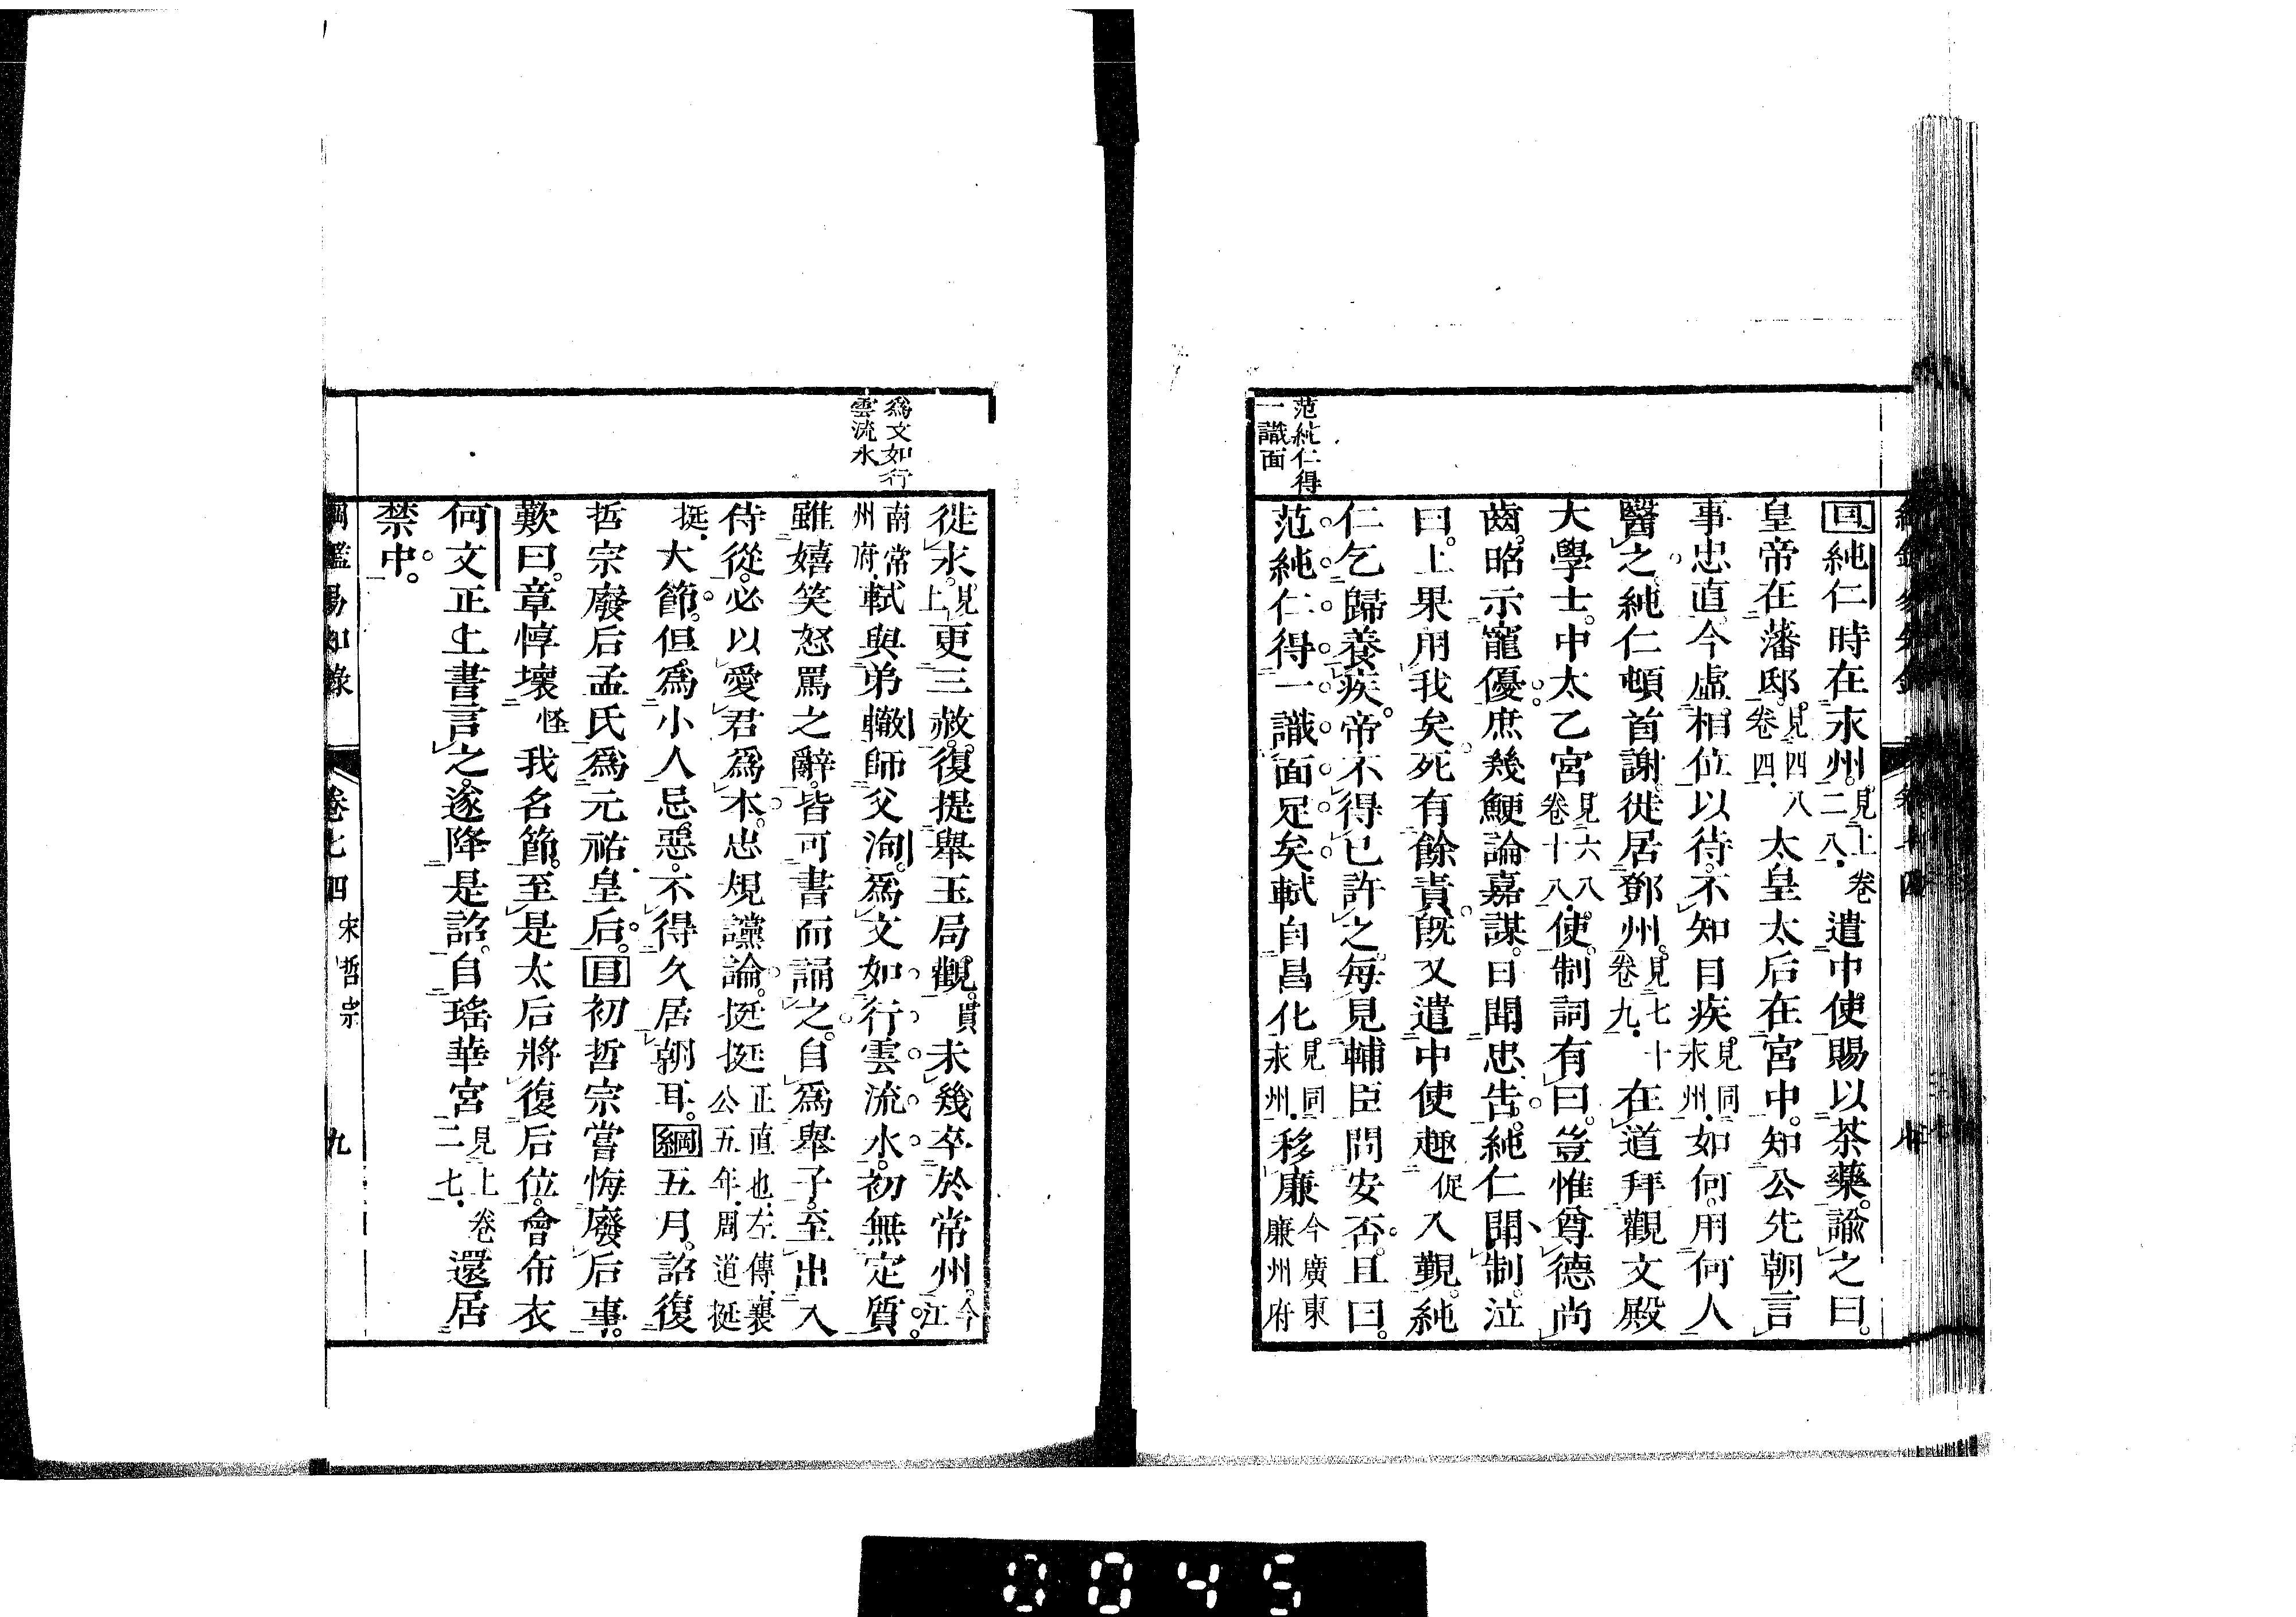 范純仁得
一識面
目純仁時在永州。見上卷二八。遣中使賜以茶藥。諭之曰。
皇帝在藩邸。見四八卷四。太皇太后在宮中。知公先朝言
事忠直。今虛相位以待。不知目疾。見同永州。如何。用何人
醫之。純仁頓首謝。徙居鄧州。見七十卷九。在道拜觀文殿
大學士。中太乙宮見六八卷十八。使。制詞有曰。豈惟尊德尚
齒。昭示寵優。庶幾鯁論嘉謀。日聞忠告。純仁聞制。泣
曰。上果用我矣。死有餘責。旣又遣中使趣促入覲。純
仁乞歸養疾。帝不得已許之。每見輔臣問安否。且曰。
范純仁得一識面足矣。軾自昌化見同永州。移廉今廣東廉州府
爲文如行
雲流水
徙永。見上。更三赦。復提舉玉局觀。貫未幾卒於常州。今江
南常州府。軾與弟轍師父洵。爲文如行雲流水。初無定質。
雖嬉笑怒罵之辭。皆可書而誦之。自爲舉子。至出入
侍從。必以愛君爲本。忠規讜論。挺挺正直也。左傳。襄公五年。周道挺
挺。大節。但爲小人忌惡。不得久居朝耳。綱五月。詔復
哲宗廢后孟氏爲元祐皇后。目初哲宗嘗悔廢后事。
歎曰。章惇壞怪我名節。至是太后將復后位。會布衣
何文正上書言之。遂降是詔。自瑤華宮見上卷二七。還居
禁中。
綱鑑易知錄 卷七四 宋哲宗 九
0045